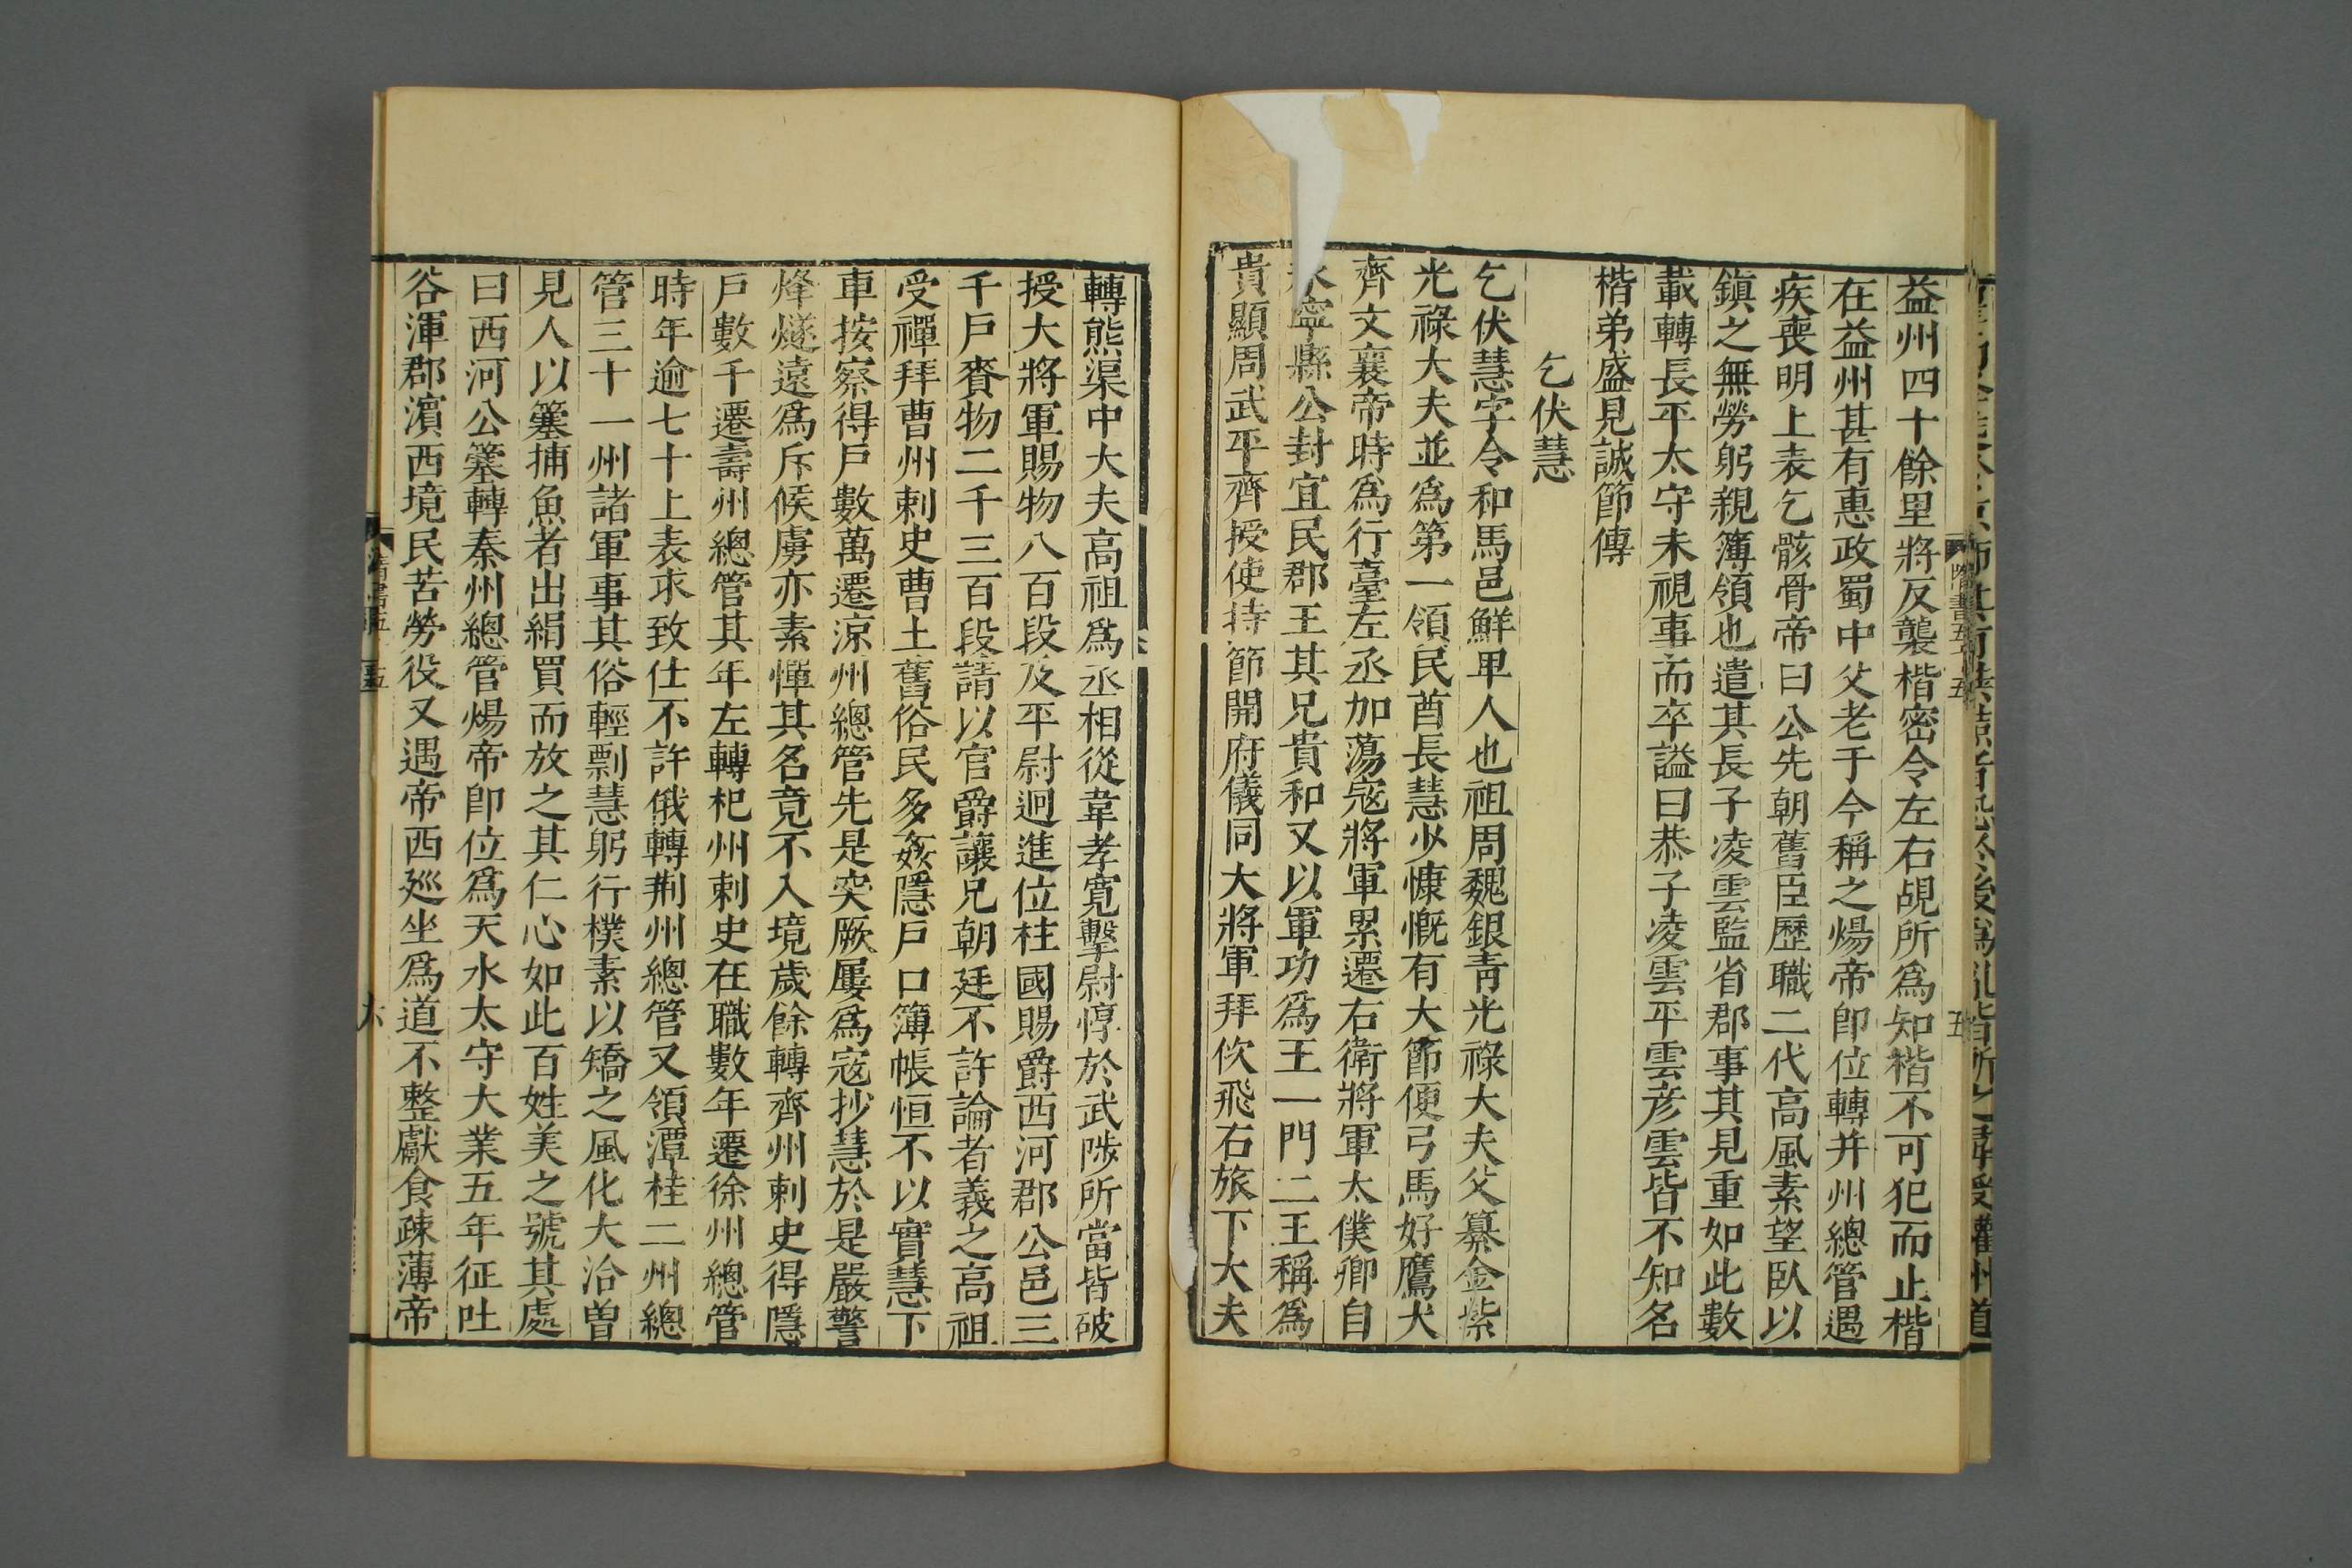 益州四十餘里將反襲楷密令左右覘所爲知楷不可犯而止楷
在益州甚有惠政蜀中父老于今稱之煬帝卽位轉并州總管遇
疾喪明上表乞骸骨帝曰公先朝舊臣歷職二代高風素望臥以
鎮之無勞躬親簿領也遣其長子凌雲監省郡事其見重如此數
載轉長平太守未視事而卒謚曰恭子凌雲平雲彦雲皆不知名
楷弟盛見誠節傳
乞伏慧
乞伏慧字令和馬邑鮮卑人也祖周魏銀青光祿大夫父纂金紫
光祿大夫並爲第一領民酋長慧少慷慨有大節便弓馬好鷹犬
齊文襄帝時爲行臺左丞加蕩寇將軍累遷右衛將軍太僕卿自
永寧縣公封宜民郡王其兄貴和又以軍功爲王一門二王稱爲
貴顯周武平齊授使持節開府儀同大將軍拜佽飛右旅下大夫
轉熊渠中大夫高祖爲丞相從韋孝寬擊尉惇於武陟所當皆破
授大將軍賜物八百段及平尉迥進位柱國賜爵西河郡公邑三
千戶賚物二千三百段請以官爵讓兄朝廷不許論者義之高祖
受禪拜曹州刺史曹土舊俗民多姦隱戶口簿帳恒不以實慧下
車按察得戶數萬遷涼州總管先是突厥屢爲寇抄慧於是嚴警
烽燧遠爲斥候虜亦素憚其名竟不入境歲餘轉齊州刺史得隱
戶數千遷壽州總管其年左轉杞州刺史在職數年遷徐州總管
時年逾七十上表求致仕不許俄轉荆州總管又領潭桂二州總
管三十一州諸軍事其俗輕剽慧躬行樸素以矯之風化大洽曾
見人以簺捕魚者出絹買而放之其仁心如此百姓美之號其處
曰西河公簺轉秦州總管煬帝卽位爲天水太守大業五年征吐
谷渾郡濱西境民苦勞役又遇帝西巡坐爲道不整獻食疎薄帝
六